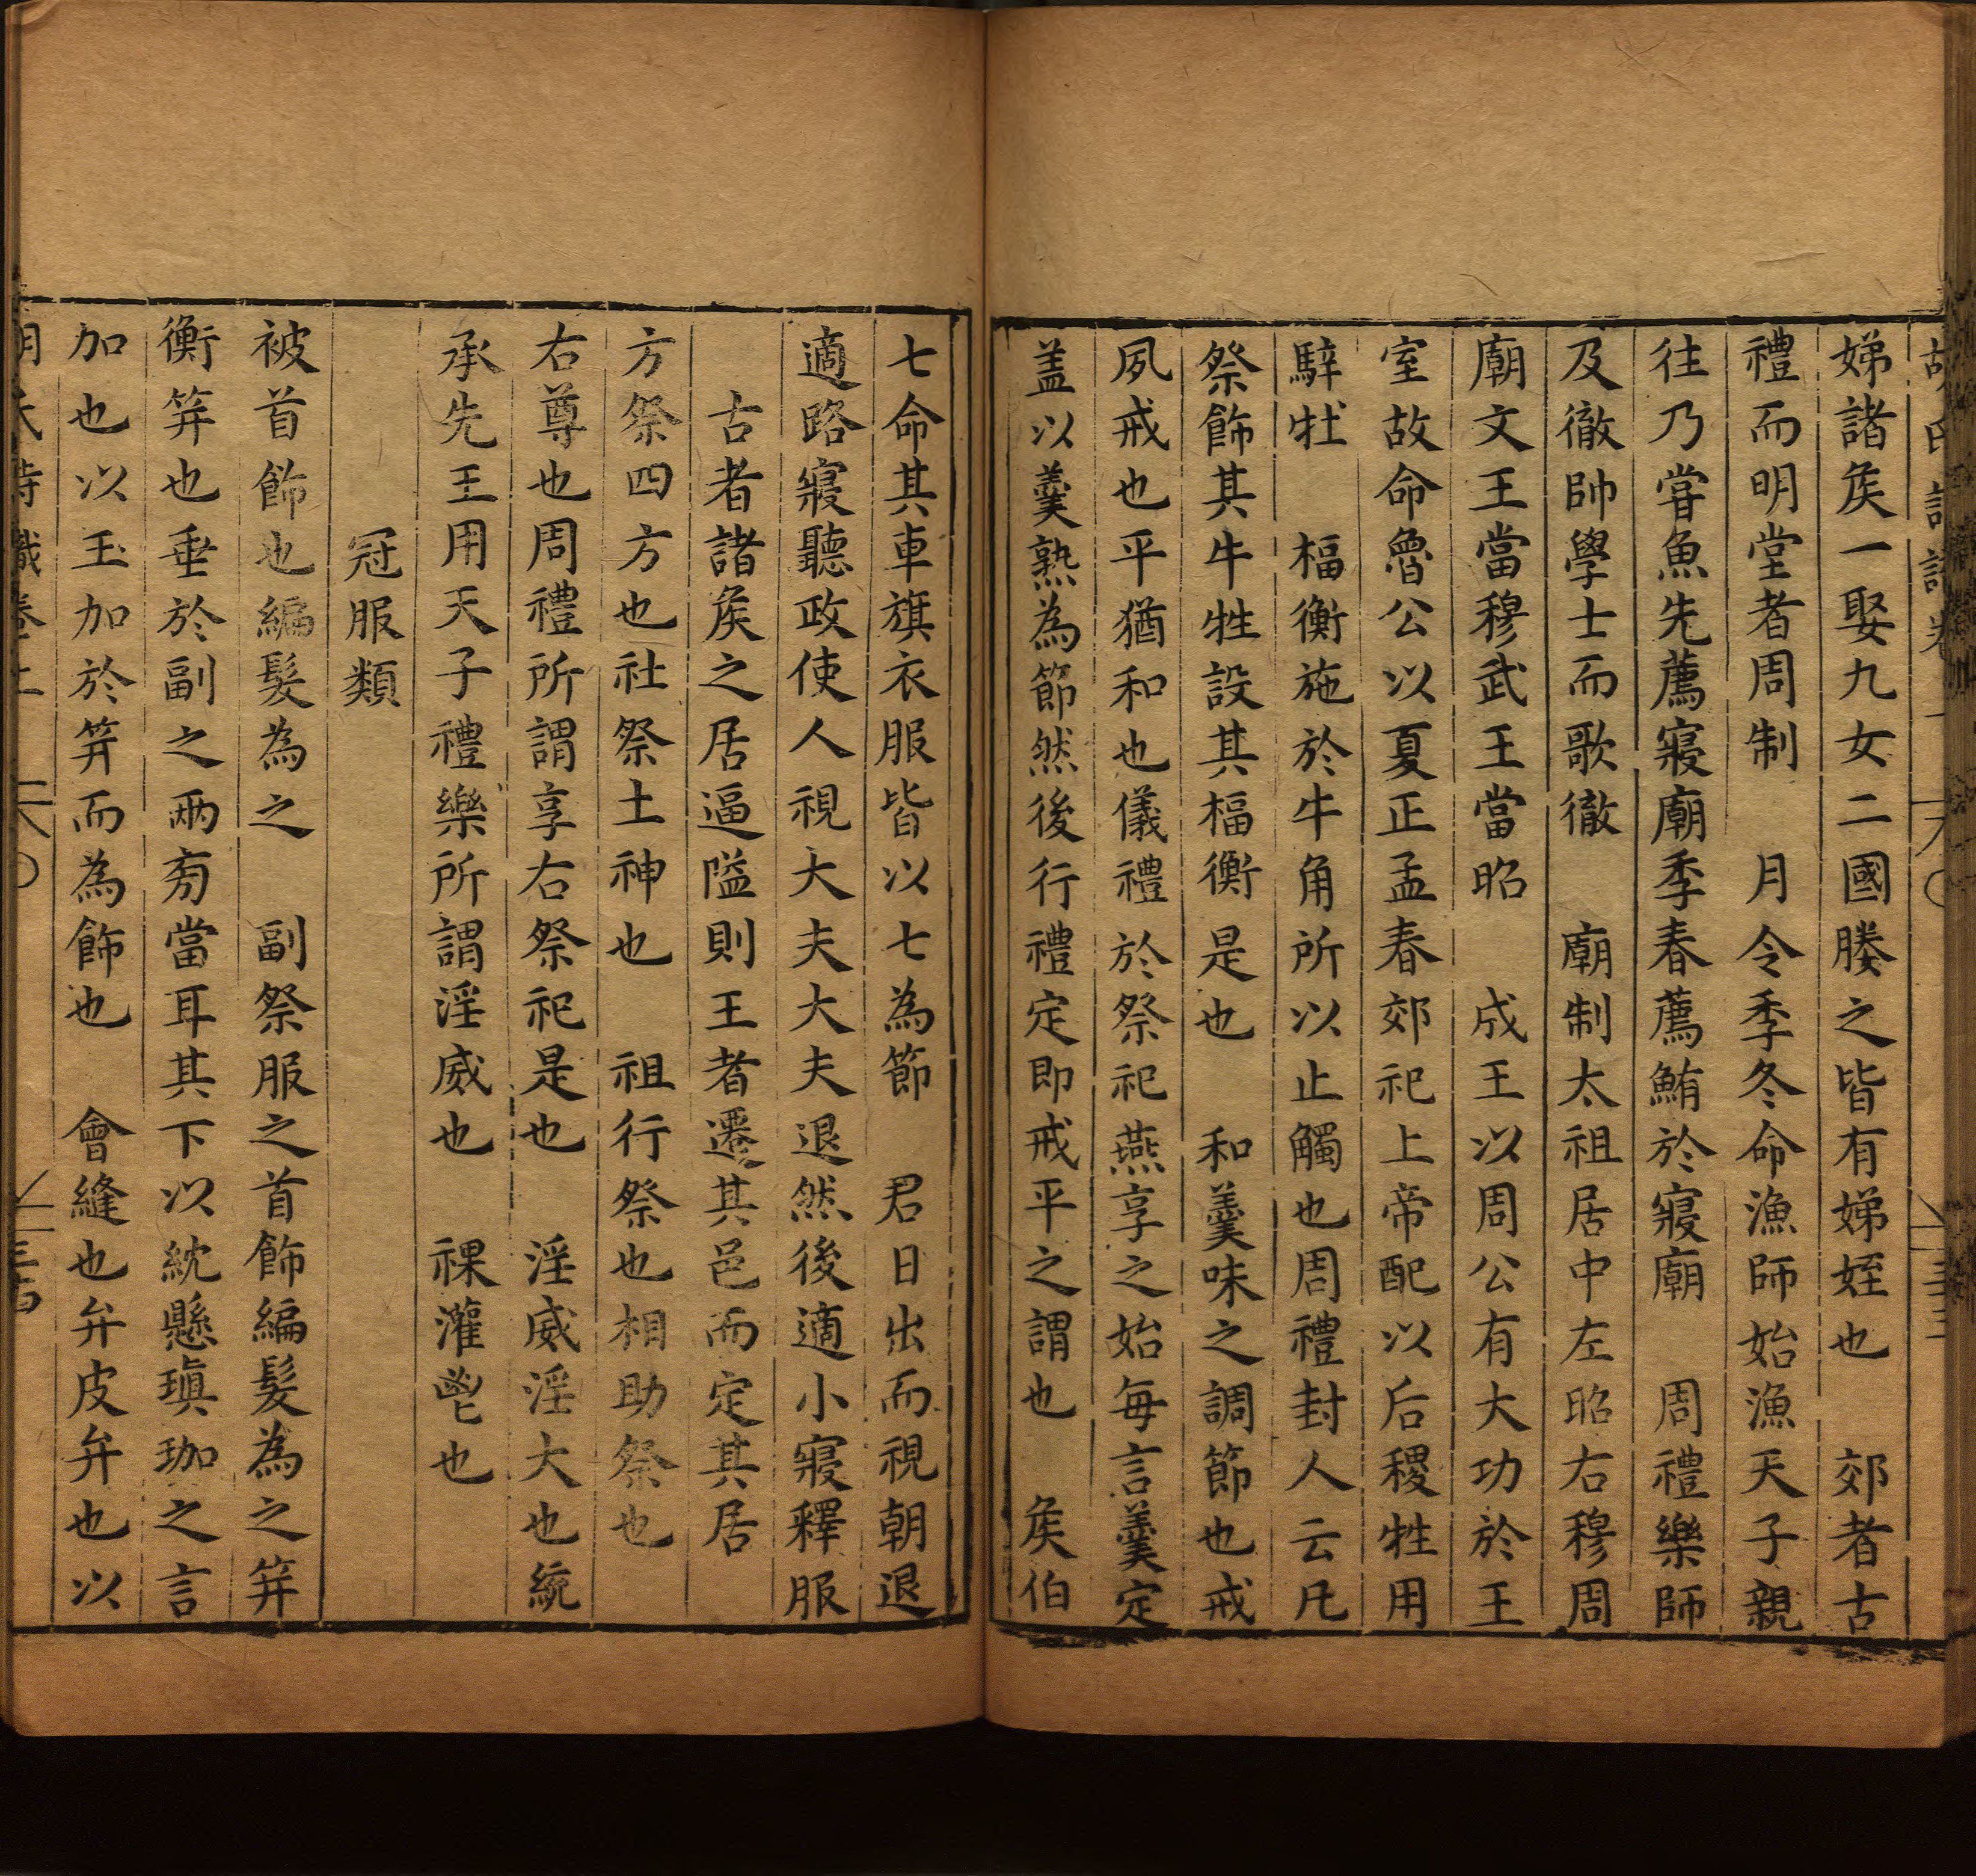 娣諸矦一娶九女二國媵之皆有娣姪也　郊者古
禮而明堂者周制　月令季冬命漁師始漁天子親
往乃甞魚先薦寢廟季春薦鮪於寢廟　周禮樂師
及徹帥學士而歌徹　廟制太祖居中左昭右穆周
廟文王當穆武王當昭　成王以周公有大功於王
室故命魯公以夏正孟春郊祀上帝配以后稷牲用
騂牡　楅衡施於牛角所以止觸也周禮封人云凡
祭飾其牛牲設其楅衡是也　和羹味之調節也戒
夙戒也平猶和也儀禮於祭祀燕享之始每言羹定
盖以羹熟為節然後行禮定即戒平之謂也　矦伯
七命其車旗衣服皆以七為節　君日出而視朝退
適路寢聽政使人視大夫大夫退然後適小寢釋服
古者諸矦之居逼隘則王者遷其邑而定其居
方祭四方也社祭土神也　祖行祭也相助祭也
右尊也周禮所謂享右祭祀是也　淫威淫大也統
承先王用天子禮樂所謂淫威也　祼灌鬯也
冠服類
被首飾也編髮為之　副祭服之首飾編髮為之笄
衡笄也垂於副之兩旁當耳其下以紞懸瑱珈之言
加也以玉加於笄而為飾也　會縫也弁皮弁也以